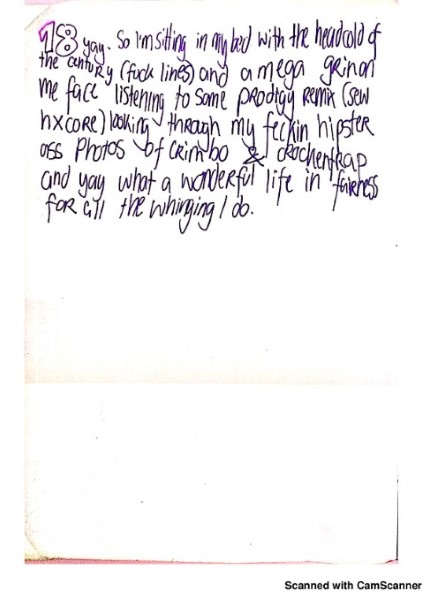 18 yay. So I'm sitting in my bed with the headcold of
the century (fuck lines) and a mega grin on
me face listening to some prodigy remix (sew
hxcore) looking through my feckin hipster
ass photos of crimbo &
and yay what a wonderful life in fairness
for all the whinging I do.
Scanned with CamScanner